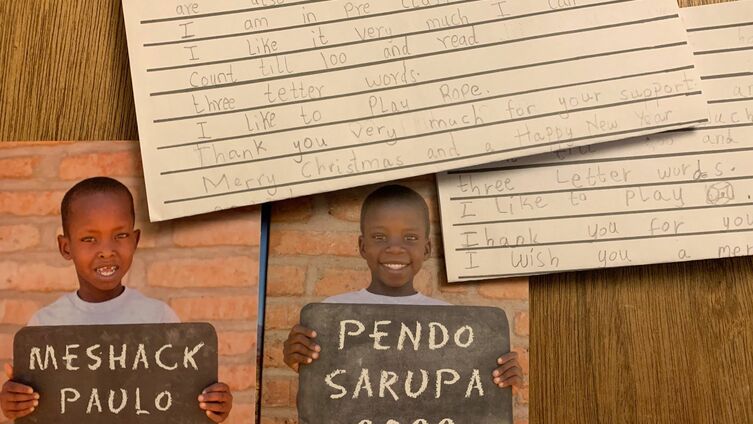 are also
I am in Pre
I like it very much I can
Count till 100 and read
three tetter words.
I like to Play Rope.
Thank you very much for your support.
Merry Christmas and a Happy New Year
and
three Letter words.
I Like to Play
Thank you for you
I wish you a mer
MESHACK
PAULO
PENDO
SARUPA